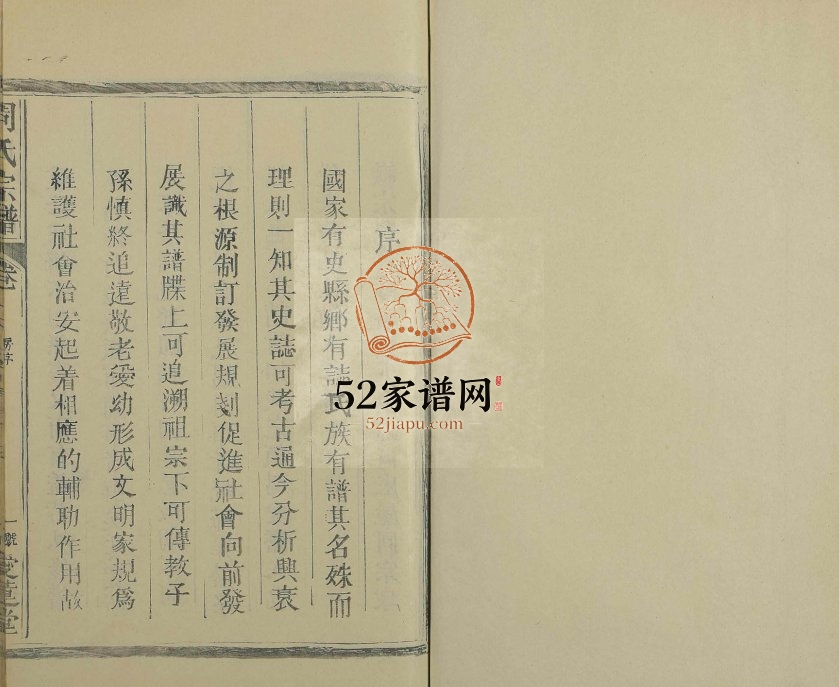 序
國家有史縣鄉有誌氏族有譜其名殊而
理則一知其史誌可考古通今分析興衰
之根源制訂發展規划促進社會向前發
展識其譜牒上可追溯祖宗下可傳教子
孫慎終追遠敬老愛幼形成文明家規為
維護社會治安起着相應的輔助作用故
周氏宗譜
卷
房序
一號
愛蓮堂
52家谱网
52jiapu.com